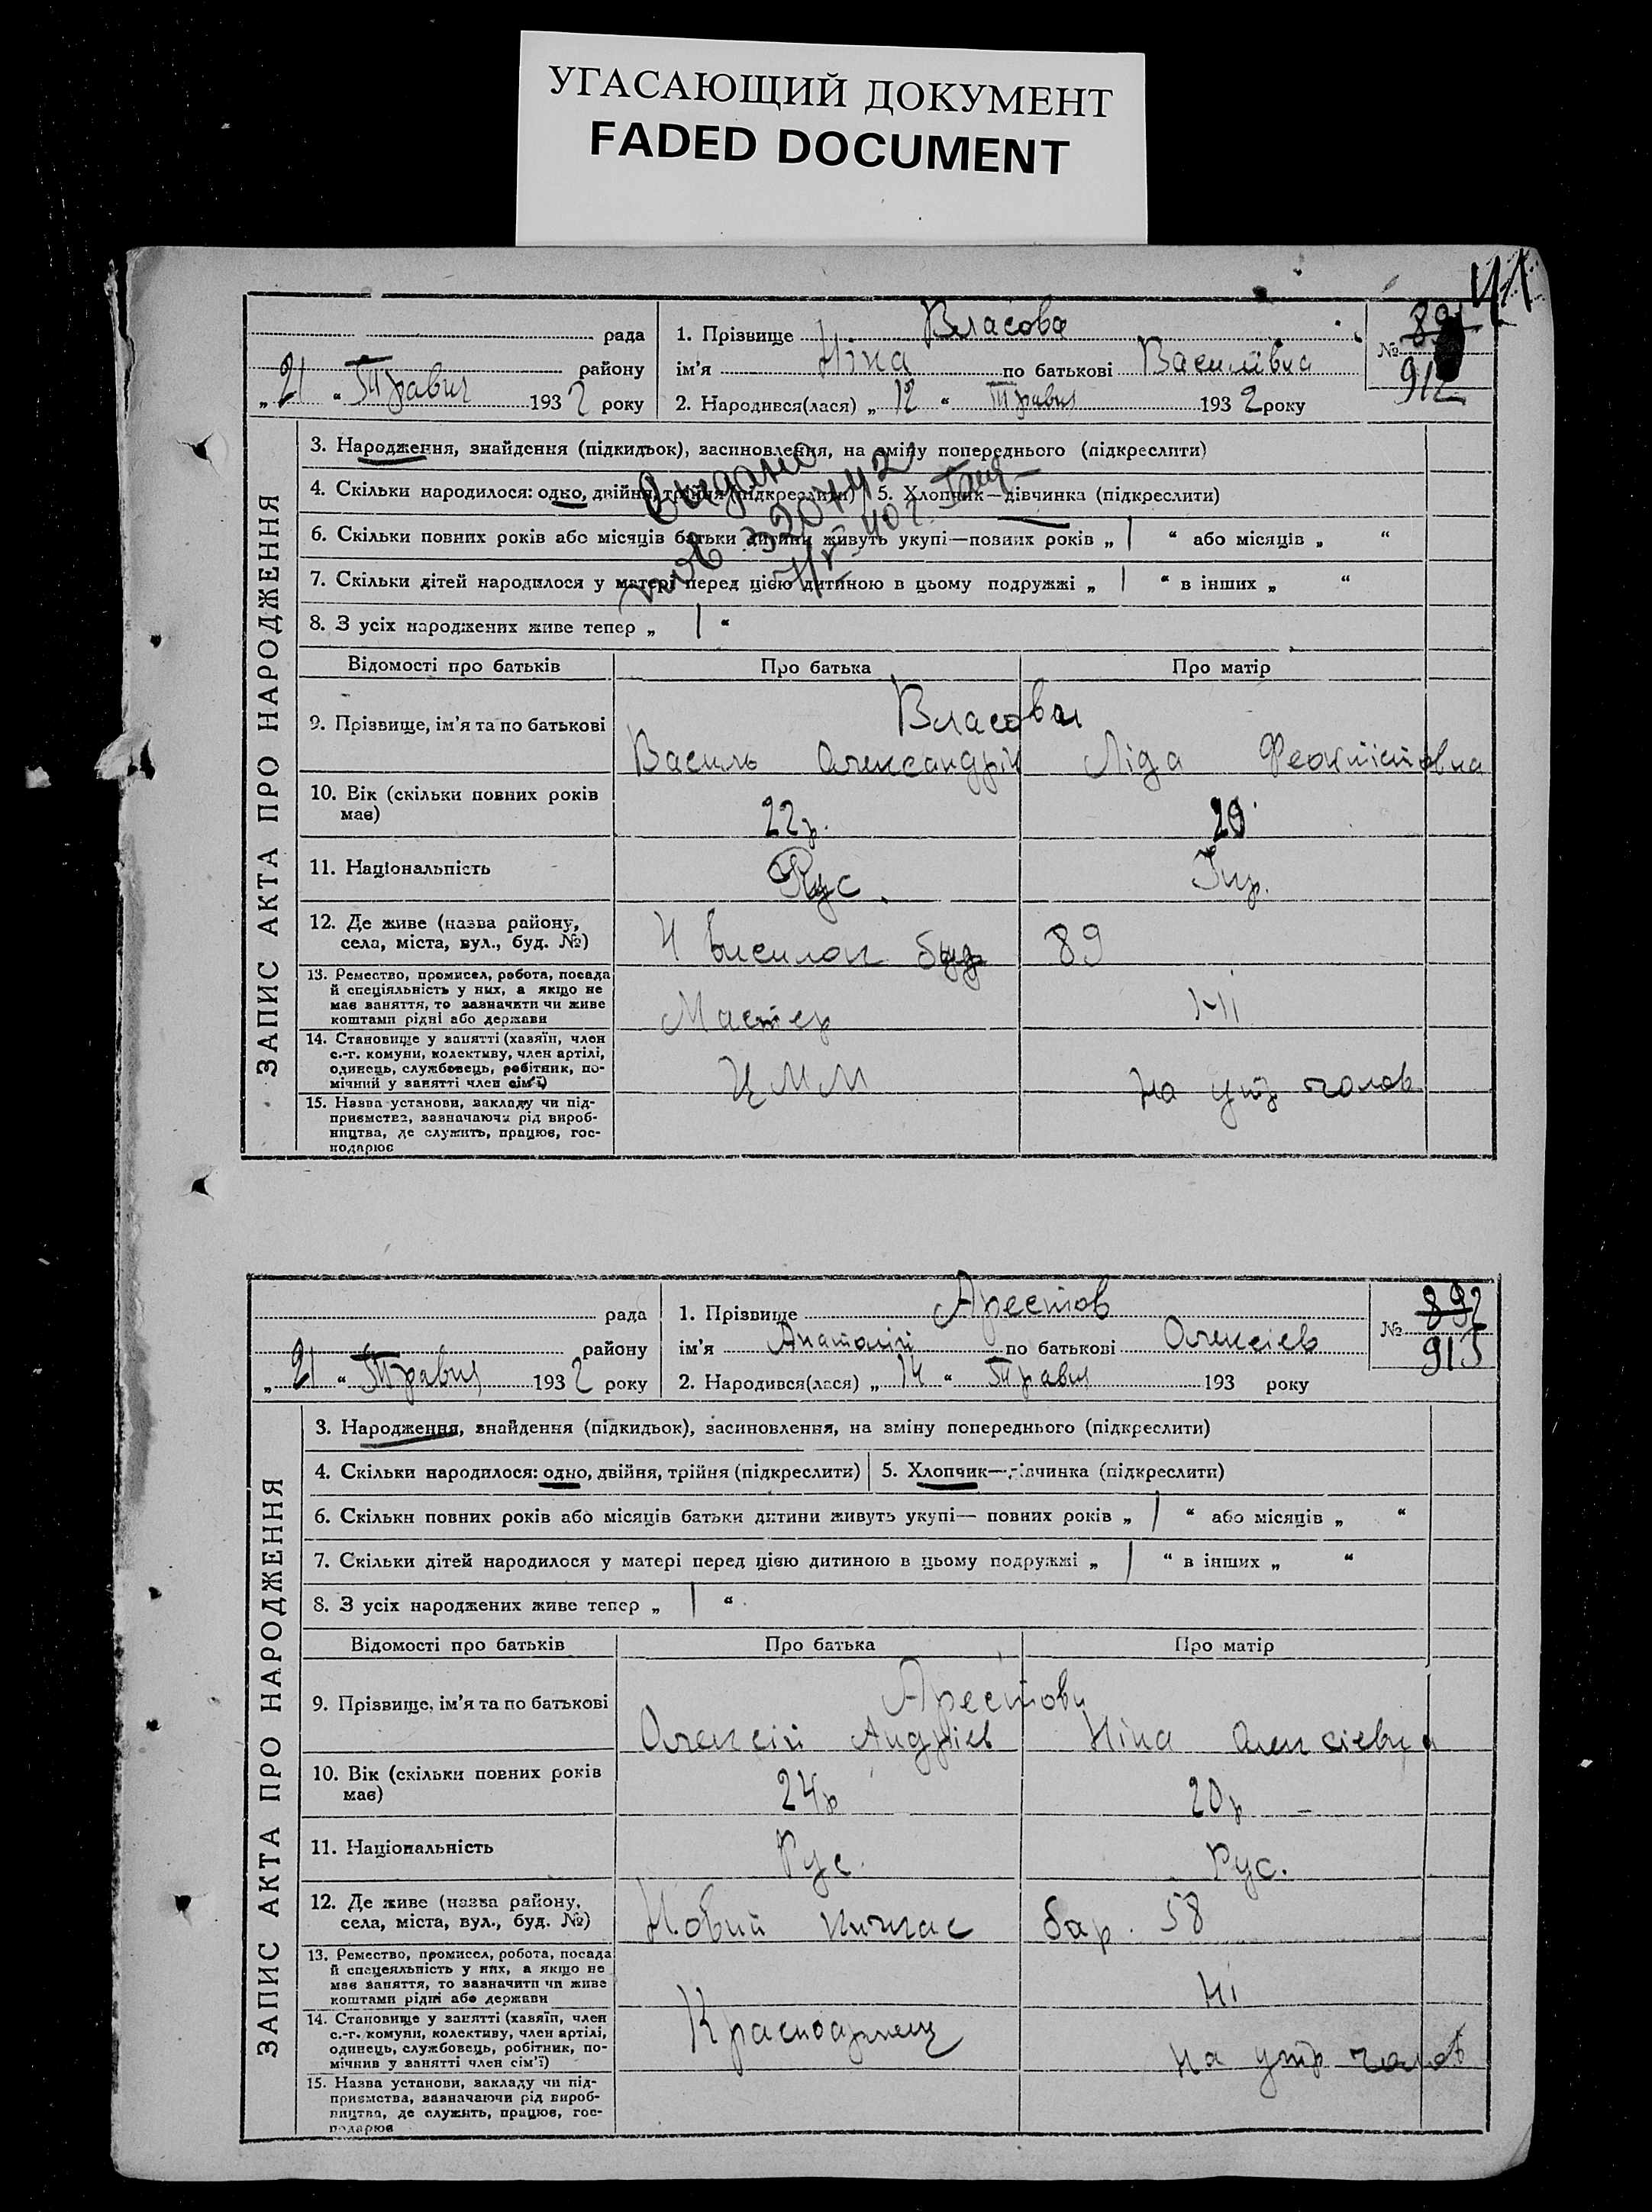 УГАСАЮЩИЙ ДОКУМЕНТ
FADED DOCUMENT
41
рада
району
„ 21 “ Травня 1932 року
1. Прізвище Власова
ім’я Ніна по батькові Василівна
2. Народився(лася) „ 12 “ Травня 1932 року
№ 891
912
ЗАПИС АКТА ПРО НАРОДЖЕННЯ
3. Народження, знайдення (підкидьок), засиновлення, на зміну попереднього (підкреслити)
4. Скільки народилося: одно, двійня, трійня (підкреслити) 5. Хлопчик—дівчинка (підкреслити)
Видано
320442
6. Скільки повних років або місяців батьки дитини живуть укупі—повних років „ 1 “ або місяців „ “
7. Скільки дітей народилося у матері перед цією дитиною в цьому подружжі „ 1 “ в інших „ “
8. З усіх народжених живе тепер „ 1 “
Відомості про батьків Про батька Про матір
9. Прізвище, ім’я та по батькові
Власови
Василь Олександрів Ліда Феоктістовна
10. Вік (скільки повних років має) 22р. 20
11. Національність Рус. Укр.
12. Де живе (назва району, села, міста, вул., буд. №) 4 виселок буд 89
13. Ремество, промисел, робота, посада й спеціяльність у них, а якщо не має заняття, то зазначити чи живе коштами рідні або держави
Мастер Ні
14. Становище у занятті (хазяїн, член с.-г. комуни, колективу, член артілі, одинець, службовець, робітник, помічний у занятті член сім’ї)
ЦММ На утр чолов
15. Назва установи, закладу чи підприємства, зазначаючи рід виробництва, де служить, працює, господарює
рада
району
„ 21 “ Травня 1932 року
1. Прізвище Арестов
ім’я Анатолій по батькові Олексієв
2. Народився(лася) „ 14 “ Травня 193 року
№ 892
913
ЗАПИС АКТА ПРО НАРОДЖЕННЯ
3. Народження, знайдення (підкидьок), засиновлення, на зміну попереднього (підкреслити)
4. Скільки народилося: одно, двійня, трійня (підкреслити) 5. Хлопчик—дівчинка (підкреслити)
6. Скільки повних років або місяців батьки дитини живуть укупі— повних років „ 1 “ або місяців „ “
7. Скільки дітей народилося у матері перед цією дитиною в цьому подружжі „ 1 “ в інших „ “
8. З усіх народжених живе тепер „ 1 “
Відомості про батьків Про батька Про матір
9. Прізвище, ім’я та по батькові
Арестови
Олексій Андріїв Ніна Олексіевна
10. Вік (скільки повних років має) 24р 20р
11. Національність Рус. Рус.
12. Де живе (назва району, села, міста, вул., буд. №) Новий Кичкас бар. 58
13. Ремество, промисел, робота, посада й спецеяльність у них, а якщо не має заняття, то зазначити чи живе коштами рідні або держави
Ні
14. Становище у занятті (хазяїн, член с.-г. комуни, колективу, член артілі, одинець, службовець, робітник, помічник у занятті член сім’ї)
Красноармеец На утр чолов
15. Назва установи, закладу чи підприємства, зазначаючи рід виробництва, де служить, працює, господарює